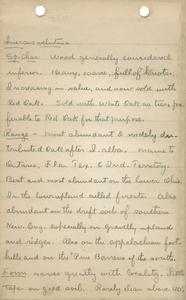 Quercus velutina
Sp. Char. Wood generally considered
inferior. Heavy, coarse, full of knots.
Increasing in value, and now sold with
Red Oak. Sold with White Oak as ties, pre-
ferable to Red Oak for that purpose.
Range - Most abundant & widely dis-
tributed Oak after Q. alba. Maine to
Ontario, Fla. Tex. to Ind. Territory.
Best and most abundant on the lower Ohio.
In the low upland called forests. Also
abundant on the drift soils of southern
New Eng. especially on gravelly upland
and ridges. Also on the appalachian foot-
hills and on the "Pine Barrens of the south.
Form varies greatly with locality. Little
taper on good soil. Rarely clear above 40',